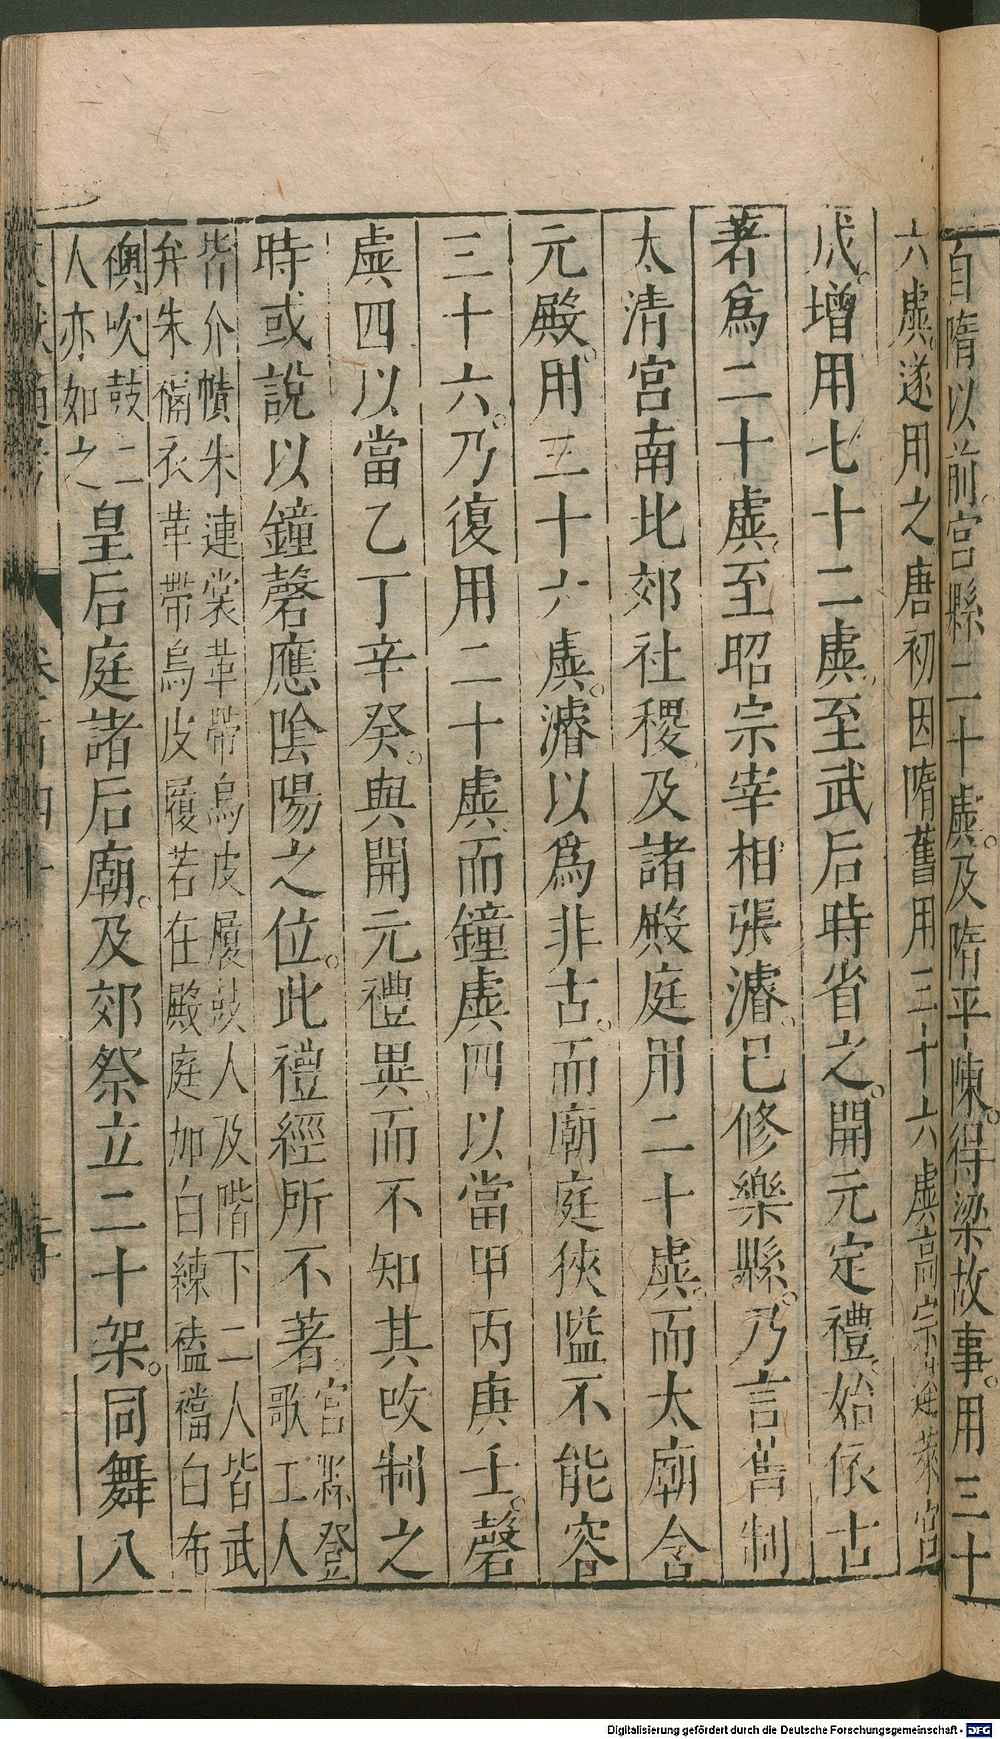 自隋以前。宮縣二十虡。及隋平陳。得梁故事。用三十
六虡。遂用之唐初因隋舊用三十六虡高宗蓬萊宮
成。增用七十二虡。至武后時省之。開元定禮。始依古
著爲二十虡。至昭宗宰相張濬。已修樂縣。乃言舊制
太清宮南北郊社稷。及諸殿庭用二十虡。而太廟含
元殿。用三十六虡。濬以爲非古。而廟庭狹隘不能容
三十六。乃復用二十虡而鐘虡四以當甲丙庚壬。磬
虡四以當乙丁辛癸。與開元禮異。而不知其改制之
時或說以鐘磬應陰陽之位。此禮經所不著。宮縣登
歌工人
皆介幘朱連裳革帶烏皮履鼓人及階下二人皆武
弁朱褠衣革帶烏皮履若在殿庭加白練䘥襠白布
襖吹鼓二
人亦如之皇后庭諸后廟。及郊祭立二十架。同舞八
Digitalisierung gefördert durch die Deutsche Forschungsgemeinschaft - DFG